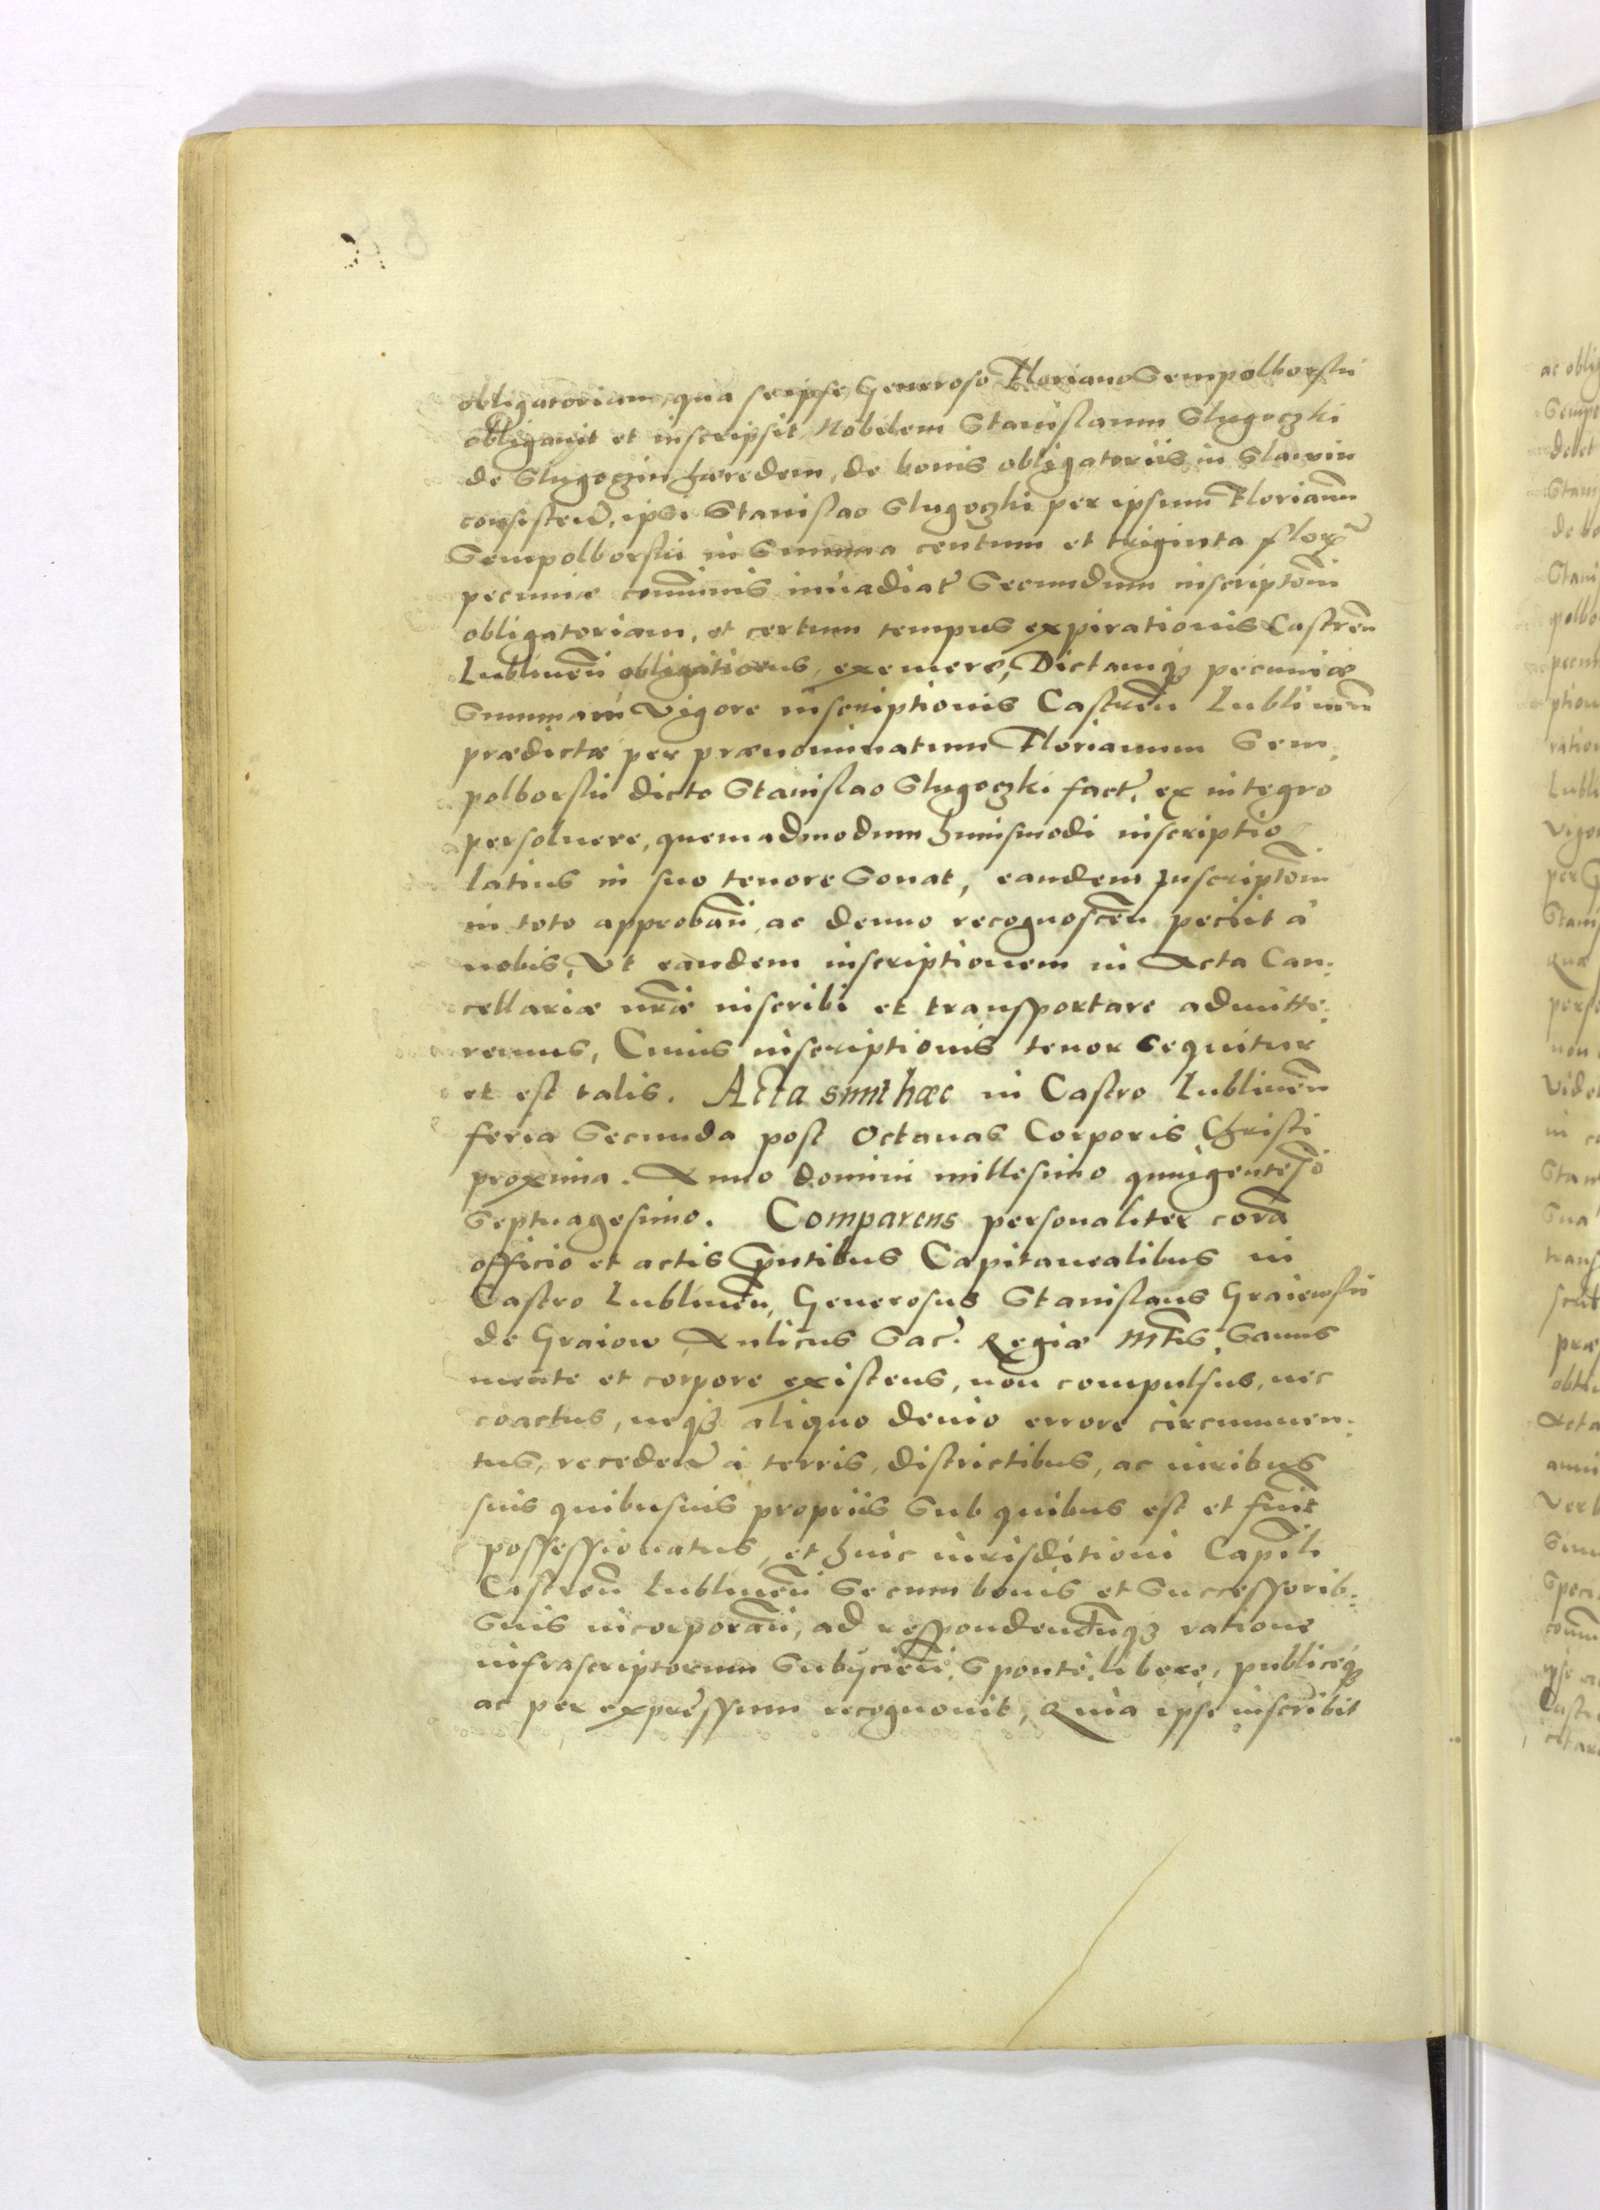 obligatoriam, qua se ipse Generoso Floriano Sempolborski
obligauit et inscripsit Nobilem Stanislaum Slugoczki
de Slugoczin hæredem, de bonis obligatoriis in Slawin
consisteñ, ipsi Stanislao Slugoczki per ipsum Florianũ
Sempolborski in Summa centum et triginta flor̃
pecuniæ com̃unis inuadiat̃ Secundum inscriptõm
obligatoriam, et certum tempus expirationis Castreñ
Lublineñ obligationis, exemere, Dictamqȝ pecuniæ
Summam Vigore inscriptionis Castreñ Lublineñ
prædictæ per prænominatum Florianum Sem,
polborski dicto Stanislao Slugoczki fact̃, ex integro
persoluere, quemadmodum huiusmodi inscriptio
latius in suo tenore Sonat, eandem Inscriptõm
in toto approbañ, ac denuo recognosceñ peciit à
nobis, Vt eandem inscriptionem in Acta Can:
cellariæ nr̃æ inscribi et transportare admitte:
remus, Cuius inscriptionis tenor sequitur
et est talis. Acta sunt hæc in Castro Lublineñ
feria Secunda post Octauas Corporis Christi
proxima. Anno domini millesimo quingentesĩo
Septuagesimo. Comparens personaliter corã
officio et actis p̃ntibus Capitanealibus in
Castro Lublineñ, Generosus Stanislaus Graiewski
de Graiow Aulicus Sac̃. Regiæ Mt̃is, Sanus
mente et corpore existens, non compulsus, nec
coactus, neqȝ aliquo deuio errore circumuen:
tus, recedeñ à terris, districtibus, ac iuribus
suis quibusuis propriis Sub quibus est et fuit
possessionatus, et huic iurisditioni Capit̃li
Castreñ Lublineñ Se cum bonis et Successorib:
Suis incorporañ, ad respondendũqȝ ratione
infrascriptorum Subijcieñ, Sponte, libere, publiceqȝ
ac per expressum recognouit, Quia ipse inscribit